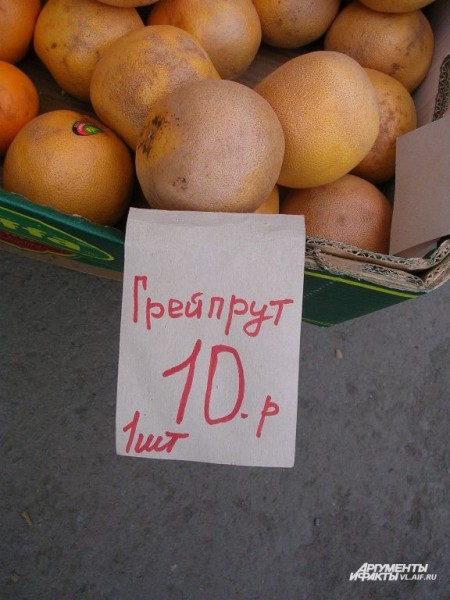 Грейпрут
10.р
1шт
АРГУМЕНТЫ
И ФАКТЫ VL.AIF.RU